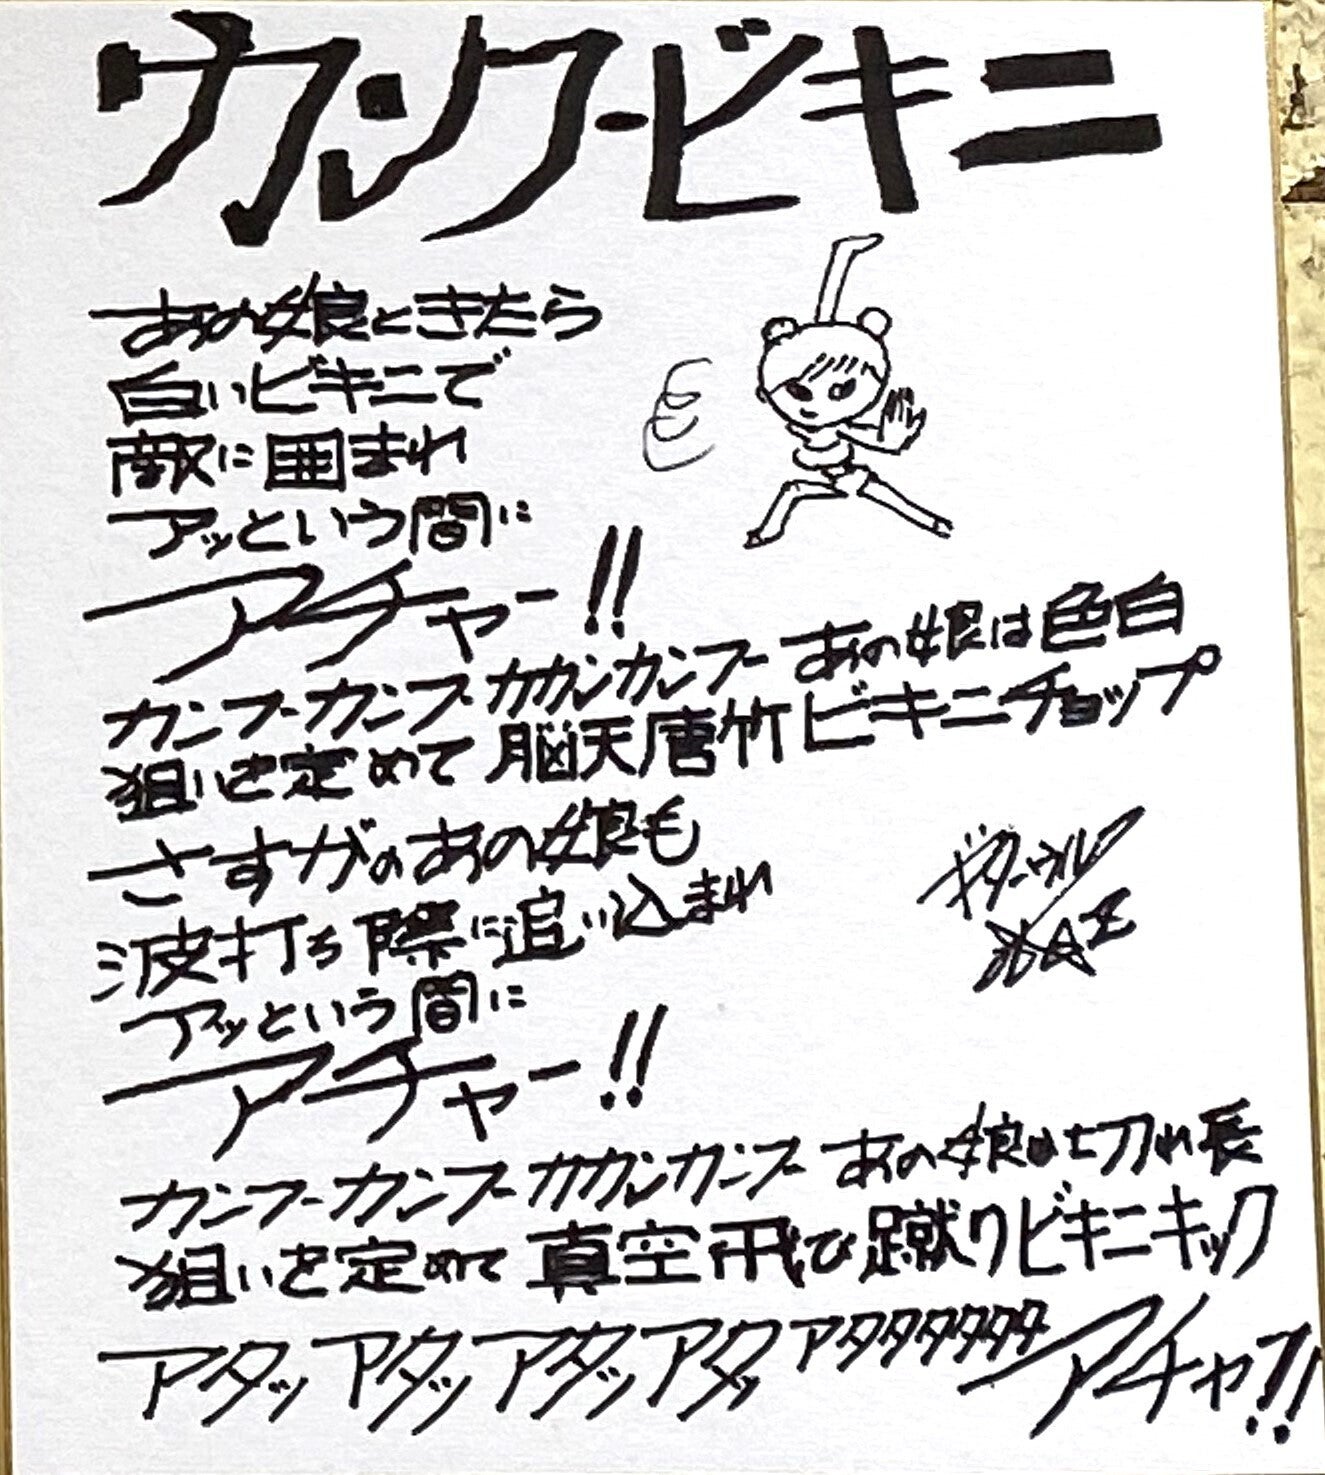 カンフービキニ
あの娘ときたら
白いビキニで
敵に囲まれ
アッという間に
アチャー!!
カンフーカンフーカカカンカンフー あの娘は色白
狙いを定めて 脳天唐竹ビキニチョップ
さすがのあの娘も
波打ち際に追い込まれ
アッという間に
アチャー!!
カンフーカンフーカカカンカンフー あの娘は切れ長
狙いを定めて 真空飛び蹴りビキニキック
アタッアタッアタッアタッアタタタタタタ アチャー!!
ギターウルフ